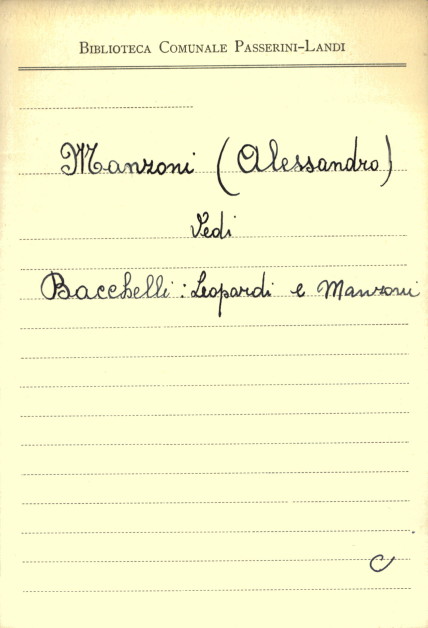 Biblioteca Comunale Passerini-Landi
Manzoni (Alessandro)
Vedi
Bacchelli: Leopardi e Manzoni
C